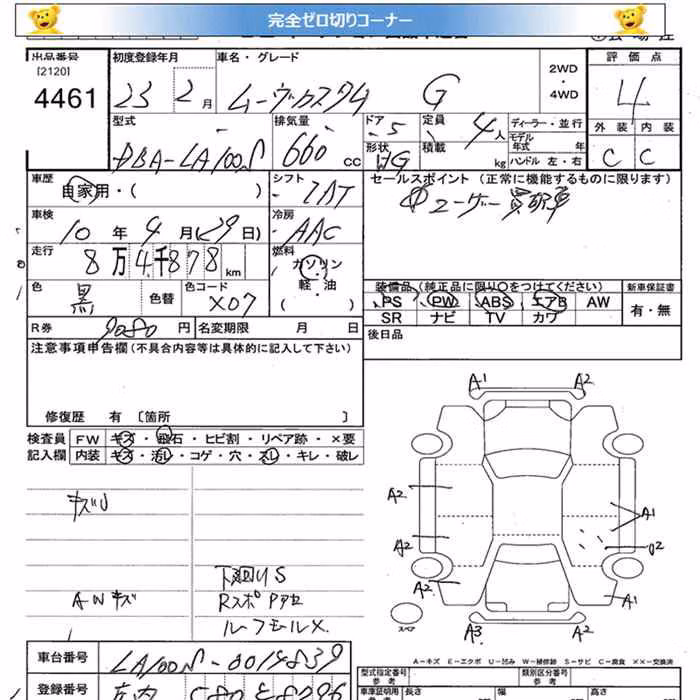 完全ゼロ切りコーナー
出品番号
[2120]
4461
初度登録年月
23 2 月
車名・グレード
ムーヴカスタム G
2WD
・
4WD
評価点
4
外装 内装
C C
型式
DBA-LA100S
排気量
660 cc
ドア
5
定員
4人
形状
積載
kg
ディーラー・並行
モデル
年式 年
ハンドル 左・右
車歴
自家用・( )
シフト
車検
10 年 4 月 (29 日)
冷房
AAC
走行
8万4千878 km
燃料
ガソリン
・
軽・油
( )
セールスポイント (正常に機能するものに限ります)
①ユーザー買取車
装備品(純正品に限り○をつけてください)
PS PW ABS エアB AW
SR ナビ TV カワ
新車保証書
有・無
色
黒
色替
色コード
X07
後日品
R券 9080 円
名変期限 月 日
注意事項申告欄(不具合内容等は具体的に記入して下さい)
修復歴 有 〔箇所 〕
検査員
記入欄
FW キズ・飛石・ヒビ割・リペア跡・×要
内装 キズ・汚レ・コゲ・穴・スレ・キレ・破レ
キズU
AWキズ
下廻りS
RスポPアセ
ルーフモールX
A1 A2
A2
A2
A2
A1
U2
A1
A3 A2
スペア
A-キズ E-エクボ U-凹み W-補修跡 S-サビ C-腐食 ××-交換済
車台番号
LA100S-0014839
登録番号
型式指定番号
参考
類別区分番号
参考
車庫証明用
参考
長さ
幅
高さ